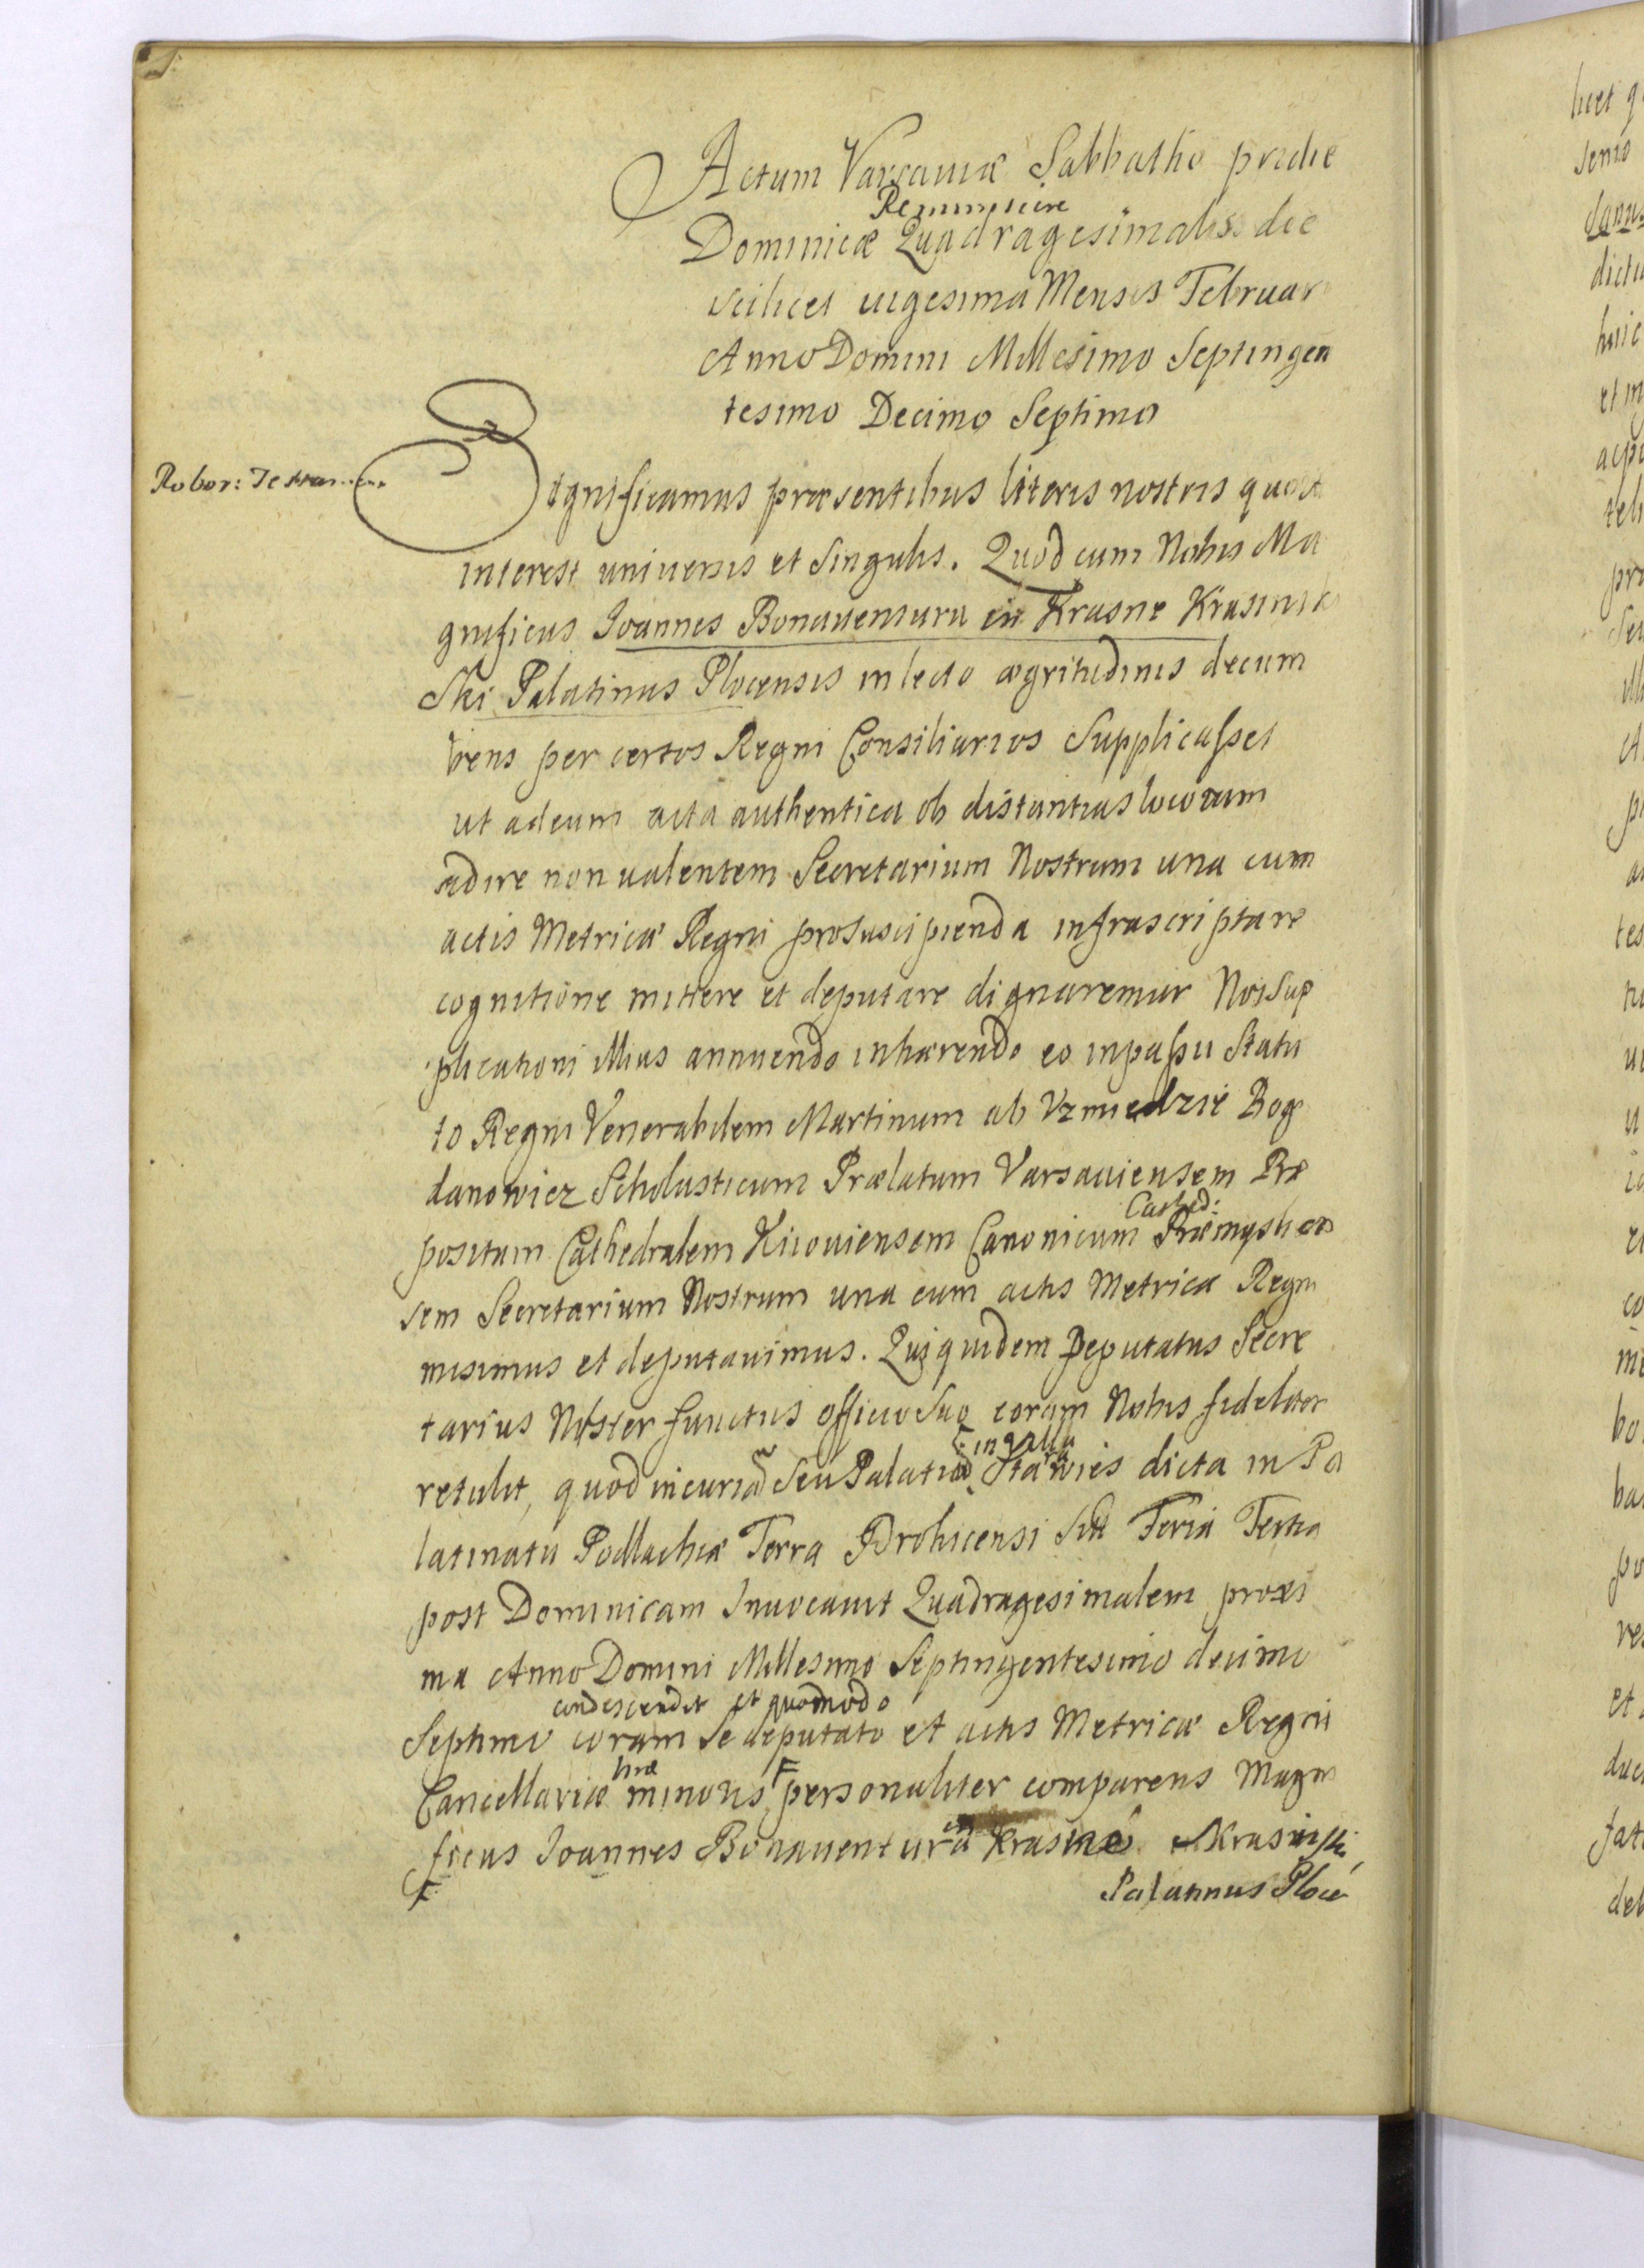 Actum Varsaviæ Sabbatho pridie
Reminiscere
Dominicæ Quadragesimalis die
scilicet uigesima Mensis Februar
Anno Domini Millesimo Septingen
tesimo Decimo Septimo
Robor: Testam
Significamus præsentibus literis nostris quor
interest uniuersis et singulis. Quod cum Nobis Ma
gnificus Joannes Bonauentura in Krasne Krasins
ski Palatinus Plocensis in lecto ægritudinis decum
bens per certos Regni Consiliarios supplicasset
ut ad eum acta authentica ob distantias locorum
adire non ualentem Secretarium Nostrum una cum
actis Metricæ Regni pro suscipienda infrascripta re
cognitione mittere et deputare dignaremur Nos sup
plicationi illius annuendo inhærendo eo in passu Statu
to Regni Venerabilem Martinum ab Vzmiedzie Bog
danowicz Scholasticum Prælatum Varsauiensem Præ
Cathed:
positum Cathedralem Kiiouiensem Canonicum Præmyslien
sem Secretarium Nostrum una cum actis Metricæ Regni
misimus et deputauimus. Qui quidem Deputatus Secre
tarius Noster functus officio suo coram Nobis fideliter
in villa
retulit, quod in curiam seu Palatium Starawies dicta in Pa
latinatu Podlachiæ Terra Drohicensi sita Feria Tertia
post Dominicam Inuocauit Quadragesimalem proxi
ma Anno Domini Millesimo Septingentesimo decimo
condescendit et quomodo
Septimo coram se deputato et actis Metricæ Regni
Cancellariæ minoris F personaliter comparens Magni
ficus Joannes Bonauentura in Krasne Krasinski
F
Palatinus Ploce